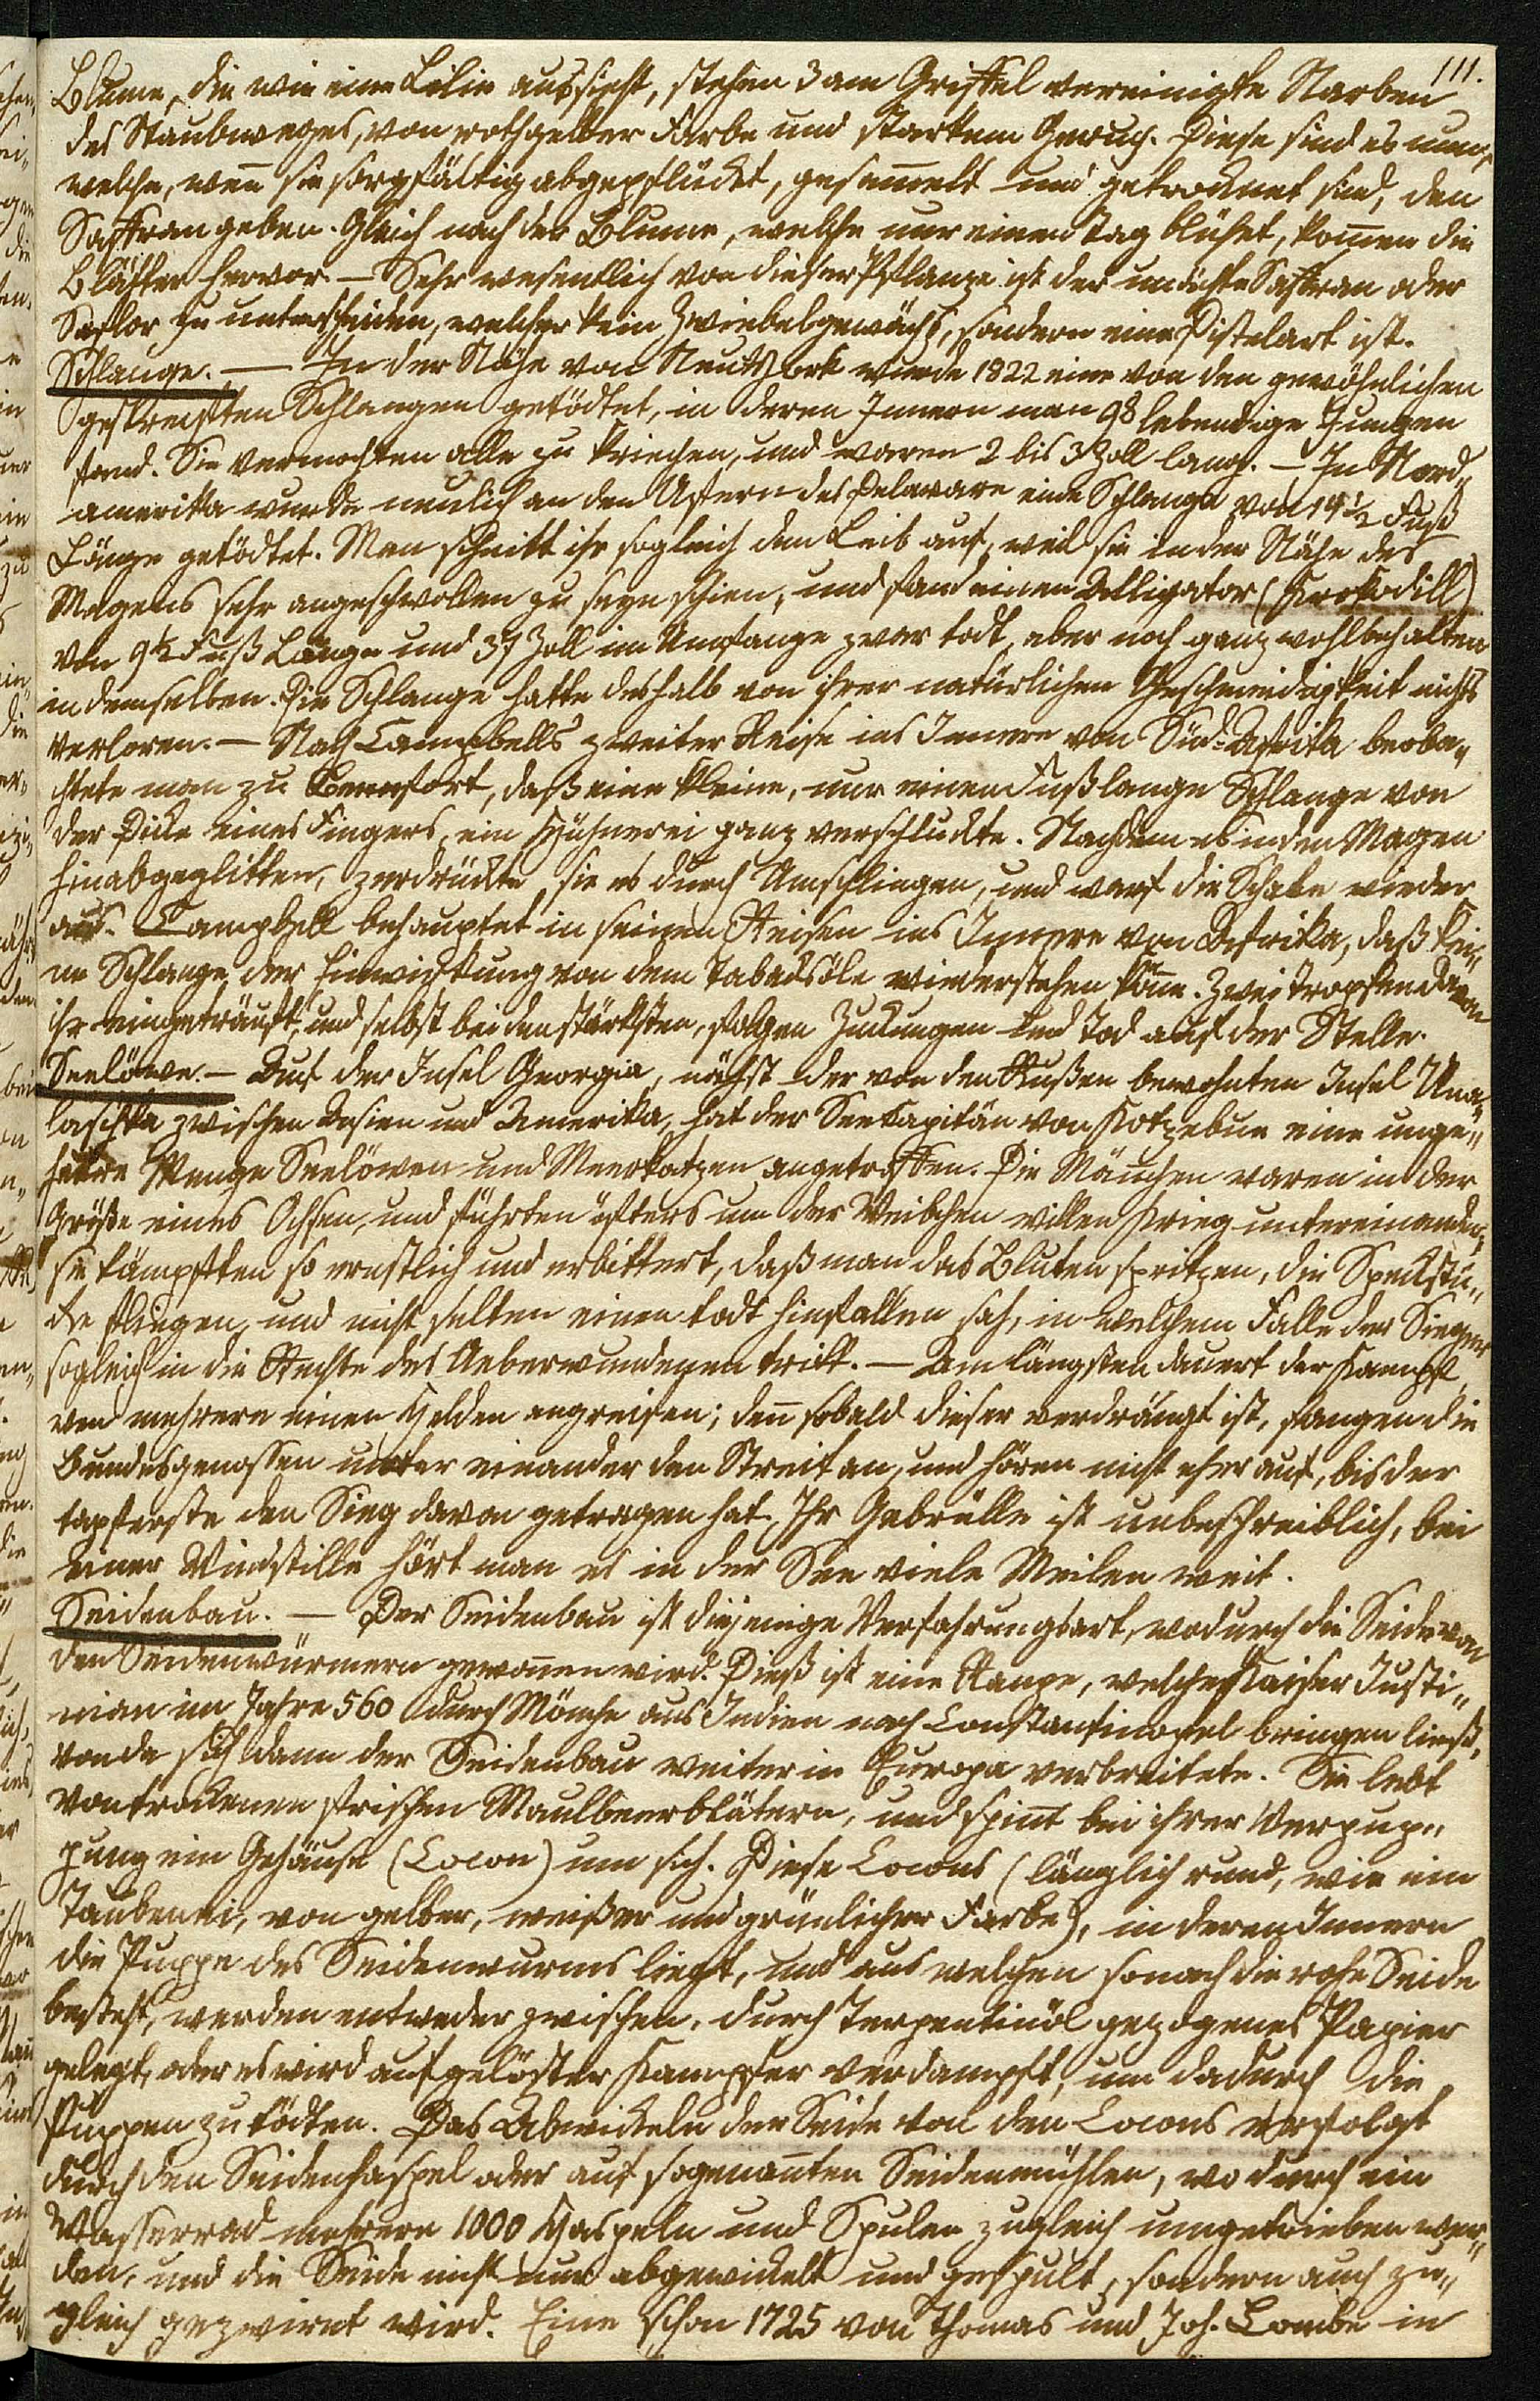 111.
Blume, die wie eine Lilie aussieht, stehen 3 am Griffel vereinigte Narben
des Staubweges, von rothgelber Farbe und starkem Geruch. Diese sind es nun,
welche, weñ sie sorgfältig abgepflückt, gesam̃elt und getrocknet sind, den
Saffran geben. Gleich nach der Blume, welche nur einen Tag blühet, kom̃en die
Blätter hervor. — Sehr wesentlich von dieser Pflanze ist der unächte Saffran oder
Saflor zu unterscheiden, welcher kein Zwiebelgewächs, sondern eine Distelart ist.
Schlange. — In der Nähe von Neu-York wurde 1822 eine von den gewöhnlichen
gestreiften Schlangen getödtet, in deren Innern man 98 lebendige Jungen
fand. Sie vermochten alle zu kriechen, und waren 2 bis 3 Zoll lang. — In Nord„
amerika wurde neulich an den Ufern des Delaware eine Schlange von 19½ Fuß
Länge getödtet. Man schnitt ihr sogleich den Leib auf, weil sie in der Nähe des
Magens sehr angeschwollen zu seyn schien, und fand einen Alligator (Krokodill)
von 9½ Fuß Länge und 37 Zoll im Umfange zwar todt, aber noch ganz wohlbehalten
in demselben. Die Schlange hatte deshalb von ihrer natürlichen Geschmeidigkeit nichts
verloren. — Nach Campbells zweiter Reise ins Innere von Süd-Afrika beoba„
chtete man zu Beaufort, daß eine kleine, nur einen Fuß lange Schlange von
der Dicke eines Fingers, ein Hühnerei ganz verschluckte. Nachdem es in den Magen
hinabgeglitten, zerdrückte sie es durch Umschlingen, und warf die Schale wieder
aus. Campbell behauptet in seinen Reisen ins Innere von Afrika, daß kei„
ne Schlange der Einwirkung von dem Tabacksöle wiederstehen köñe. Zwei Tropfen davon
ihr eingeträuft, und selbst bei den stärksten, folgen Zuckungen und Tod auf der Stelle.
Seelöwe. — Auf der Insel Georgia, nächst der von den Rußen bewohnten Insel Una„
laschka zwischen Asien und Amerika, hat der Seekapitän von Kotzebue eine unge„
heure Menge Seelöwen und Meerkatzen angetroffen. Die Mäñchen waren in der
Größe eines Ochsen, und führten öfters um der Weibchen willen Krieg untereinander,
sie kämpften so ernstlich und erbittert, daß man das Bluten spritzen, die Speckstü„
cke fliegen, und nicht selten einen todt hinfallen sah, in welchem Falle der Sieger
sogleich in die Rechte des Ueberwundenen tritt. — Am längsten dauert der Kampf,
wen mehrere einen Helden angreifen; deñ sobald dieser verdrängt ist, fangen die
Bundesgenossen unter einander den Streit an, und hören nicht eher auf, bis der
tapferste den Sieg davon getragen hat. Ihr Gebrülle ist unbeschreiblich, bei
einer Windstille hört man es in der See viele Meilen weit.
Seidenbau. — Der Seidenbau ist diejenige Verfahrungsart, wodurch die Seide von
den Seidenwürmern gewoñen wird. Dieß ist eine Raupe, welche Kaiser Justi„
nian im Jahre 560 durch Mönche aus Indien nach Constantinopel bringen ließ,
von da sich dann der Seidenbau weiter in Europa verbreitete. Sie lebt
von trockenen frischen Maulbeerblätern, und spiñt bei ihrer Verpup„
pung ein Gehäuse (Cocon) um sich. Diese Cocons (länglich rund, wie ein
Taubenei, von gelber, weißer und grünlicher Farbe), in deren Innern
die Puppe des Seidenwurms liegt, und aus welchen sonach die rohe Seide
besteht, werden entweder zwischen, durch Terpentinöl gezogenes Papier
gelegt, oder es wird aufgelöster Kampfer verdampft, um dadurch die
Puppen zu tödten. Das Abwickeln der Seide von den Cocons erfolgt
durch den Seidenhaspel oder auf sogenañten Seidenmühlen, wo durch ein
Wasserrad mehrere 1000 Haspeln und Spulen zugleich umgetrieben wer„
den, und die Seide nicht nur abgewickelt und gespult, sondern auch zu„
gleich gezwirnt wird. Eine schon 1725 von Thomas und Joh. Lombe in